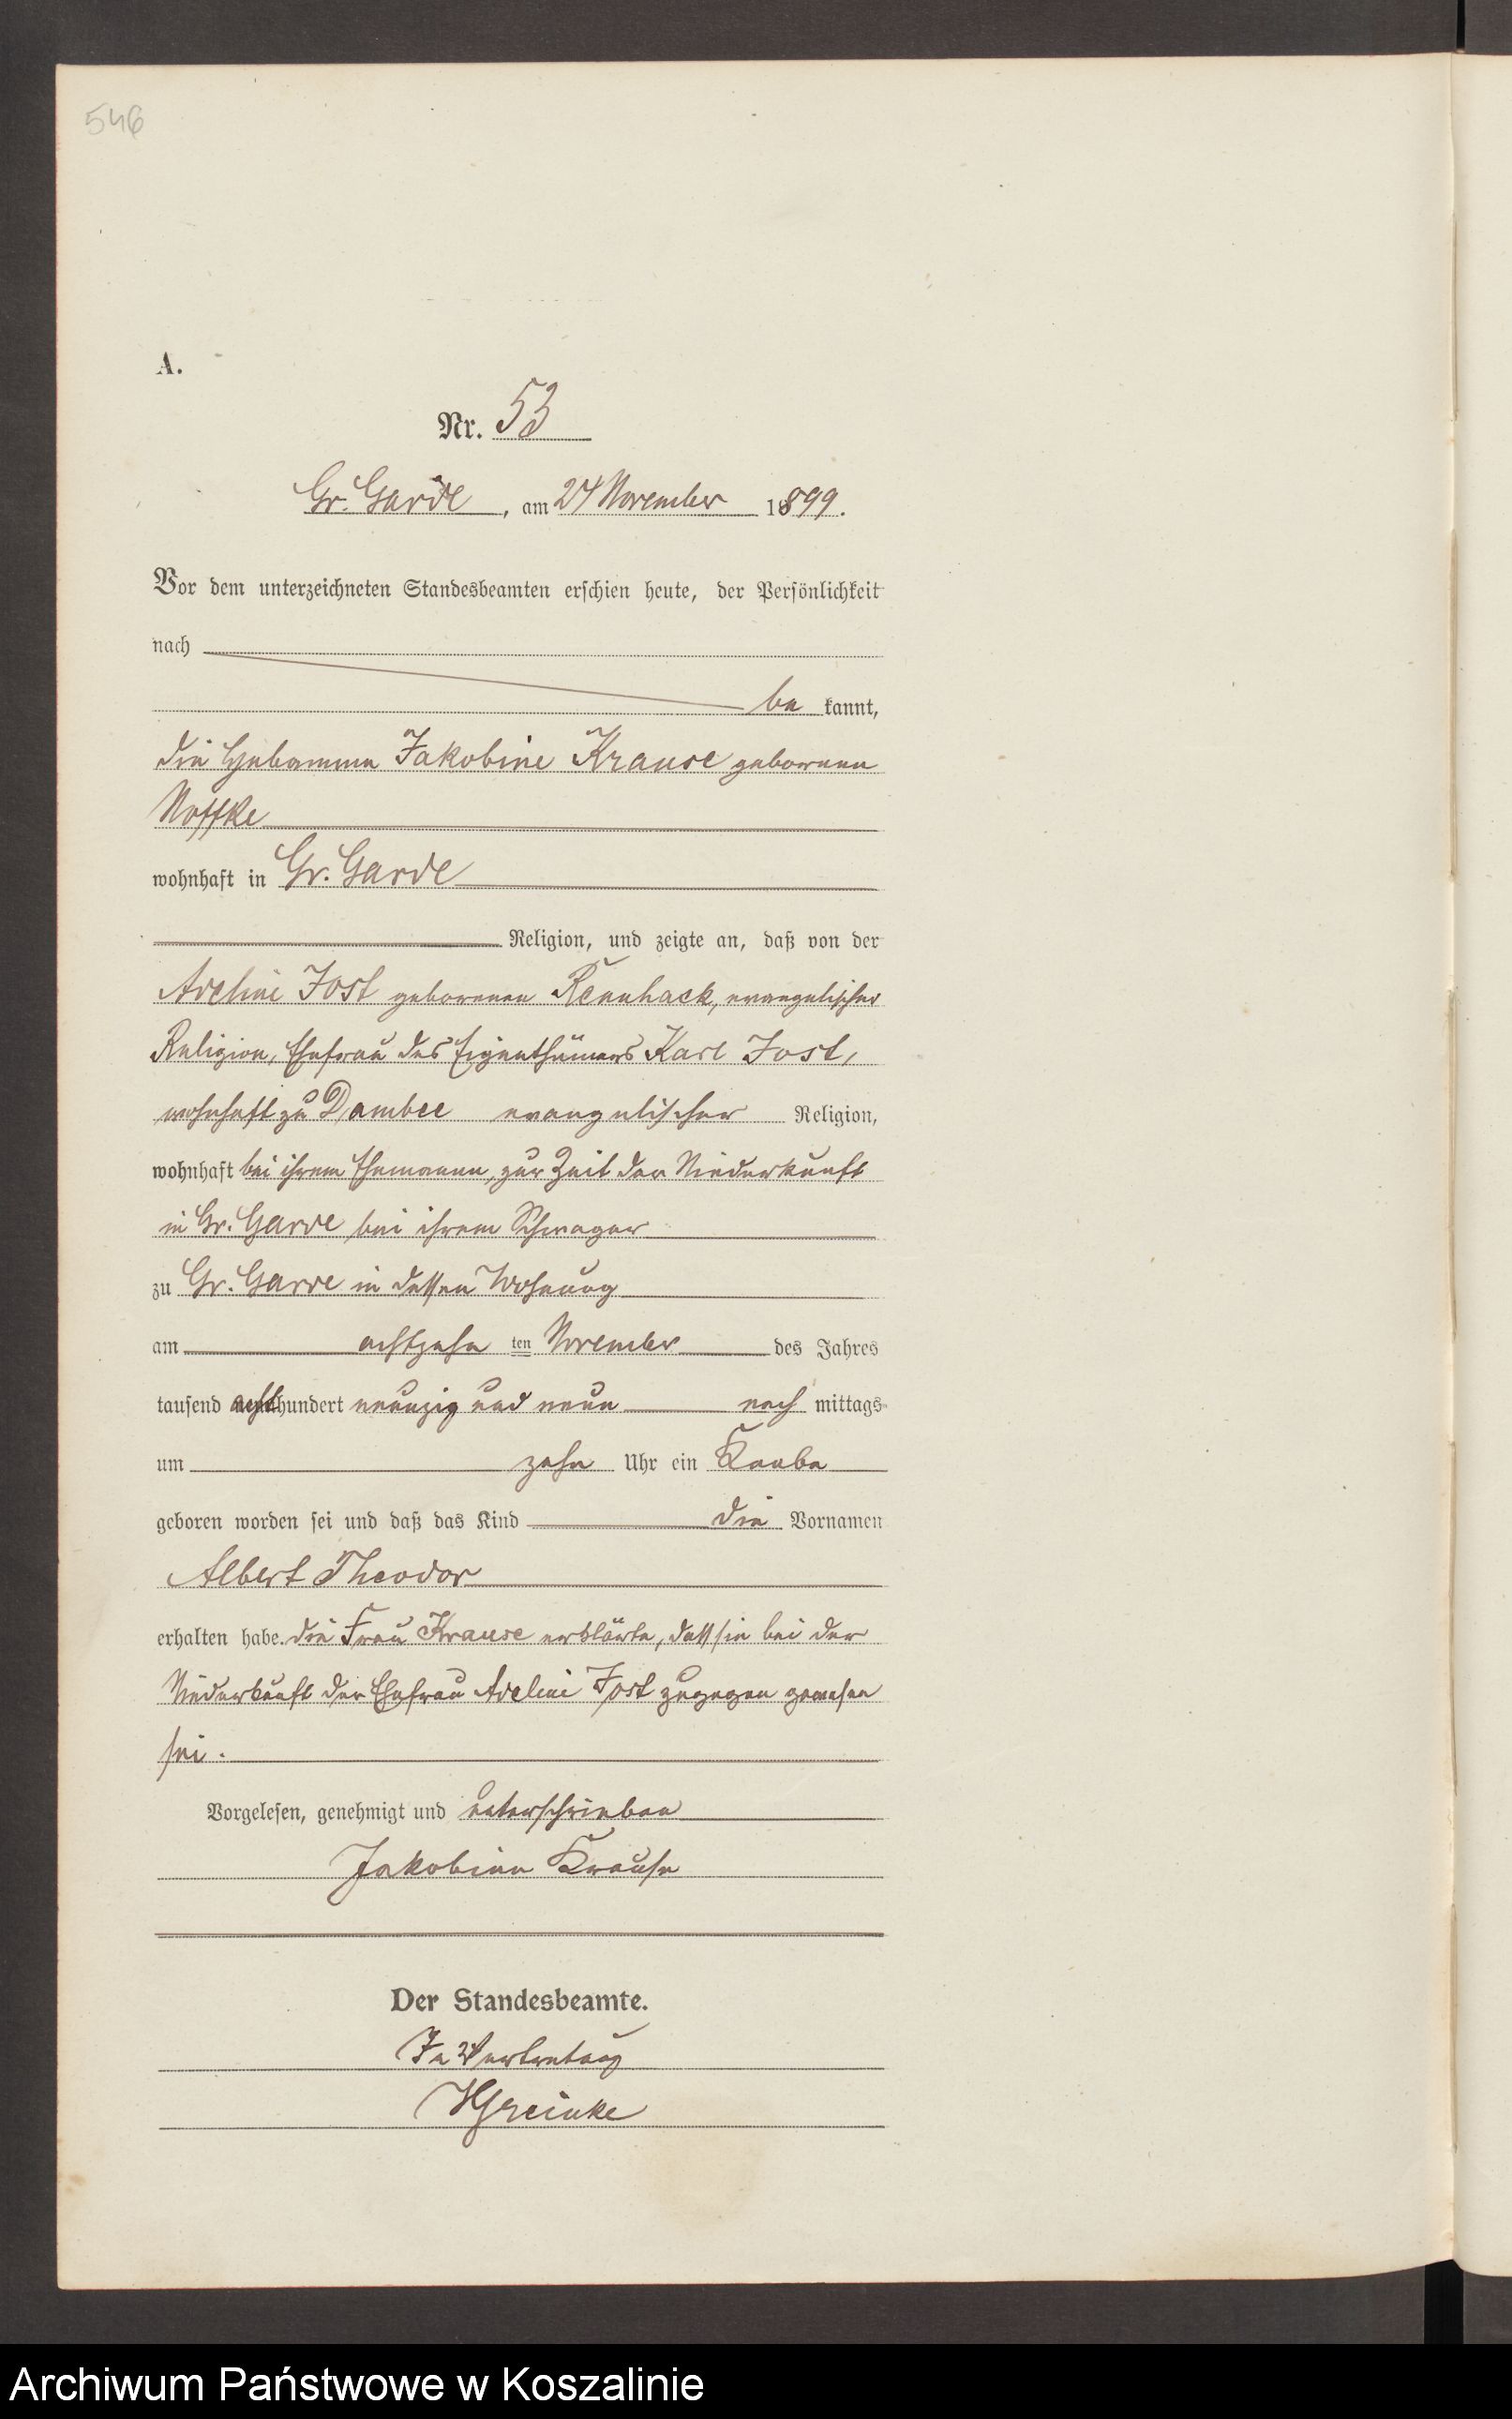 546
A.
Nr. 53
Gr. Garde, am 24 November 1899.
Vor dem unterzeichneten Standesbeamten erschien heute, der Persönlichkeit
nach
be kannt,
die Hebamme Jakobine Krause geborenen
Noffke
wohnhaft in Gr. Garde
Religion, und zeigte an, daß von der
Adeline Jost geborenen Rennhack, evangelischer
Religion, Ehefrau des Eigenthümers Karl Jost,
wohnhaft zu Dambee evangelischer Religion,
wohnhaft bei ihrem Ehemanne, zur Zeit der Niederkunft
in Gr. Garde bei ihrem Schwager
zu Gr. Garde in dessen Wohnung
am achtzehn ten November des Jahres
tausend achthundert neunzig und neun nach mittags
um zehn Uhr ein Knabe
geboren worden sei und daß das Kind die Vornamen
Albert Theodor
erhalten habe. Die Frau Krause erklärte, dass sie bei der
Niederkunft der Ehefrau Adeline Jost zugegen gewesen
sei.
Vorgelesen, genehmigt und unterschrieben
Jakobine Krause
Der Standesbeamte.
In Vertretung
Greinke
Archiwum Państwowe w Koszalinie